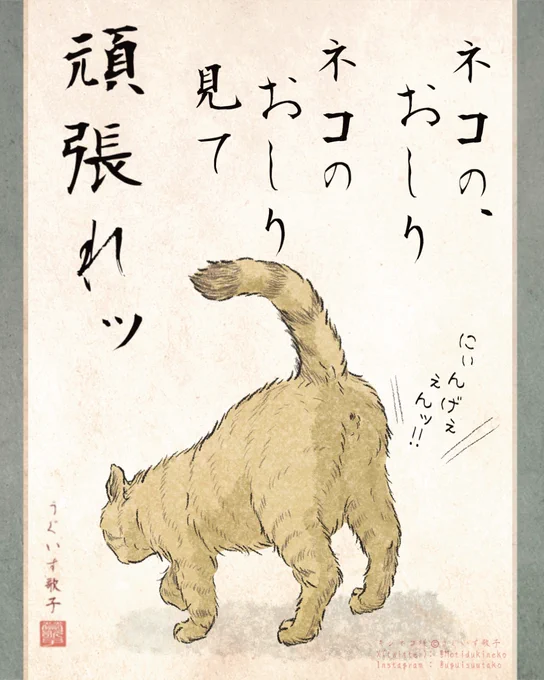 ネコの、
おしり
ネコの
おしり
見て
頑張れッ
にぃんげぇ
えんッ!!
うぐいす歌子
Instagram : @uguisuutako